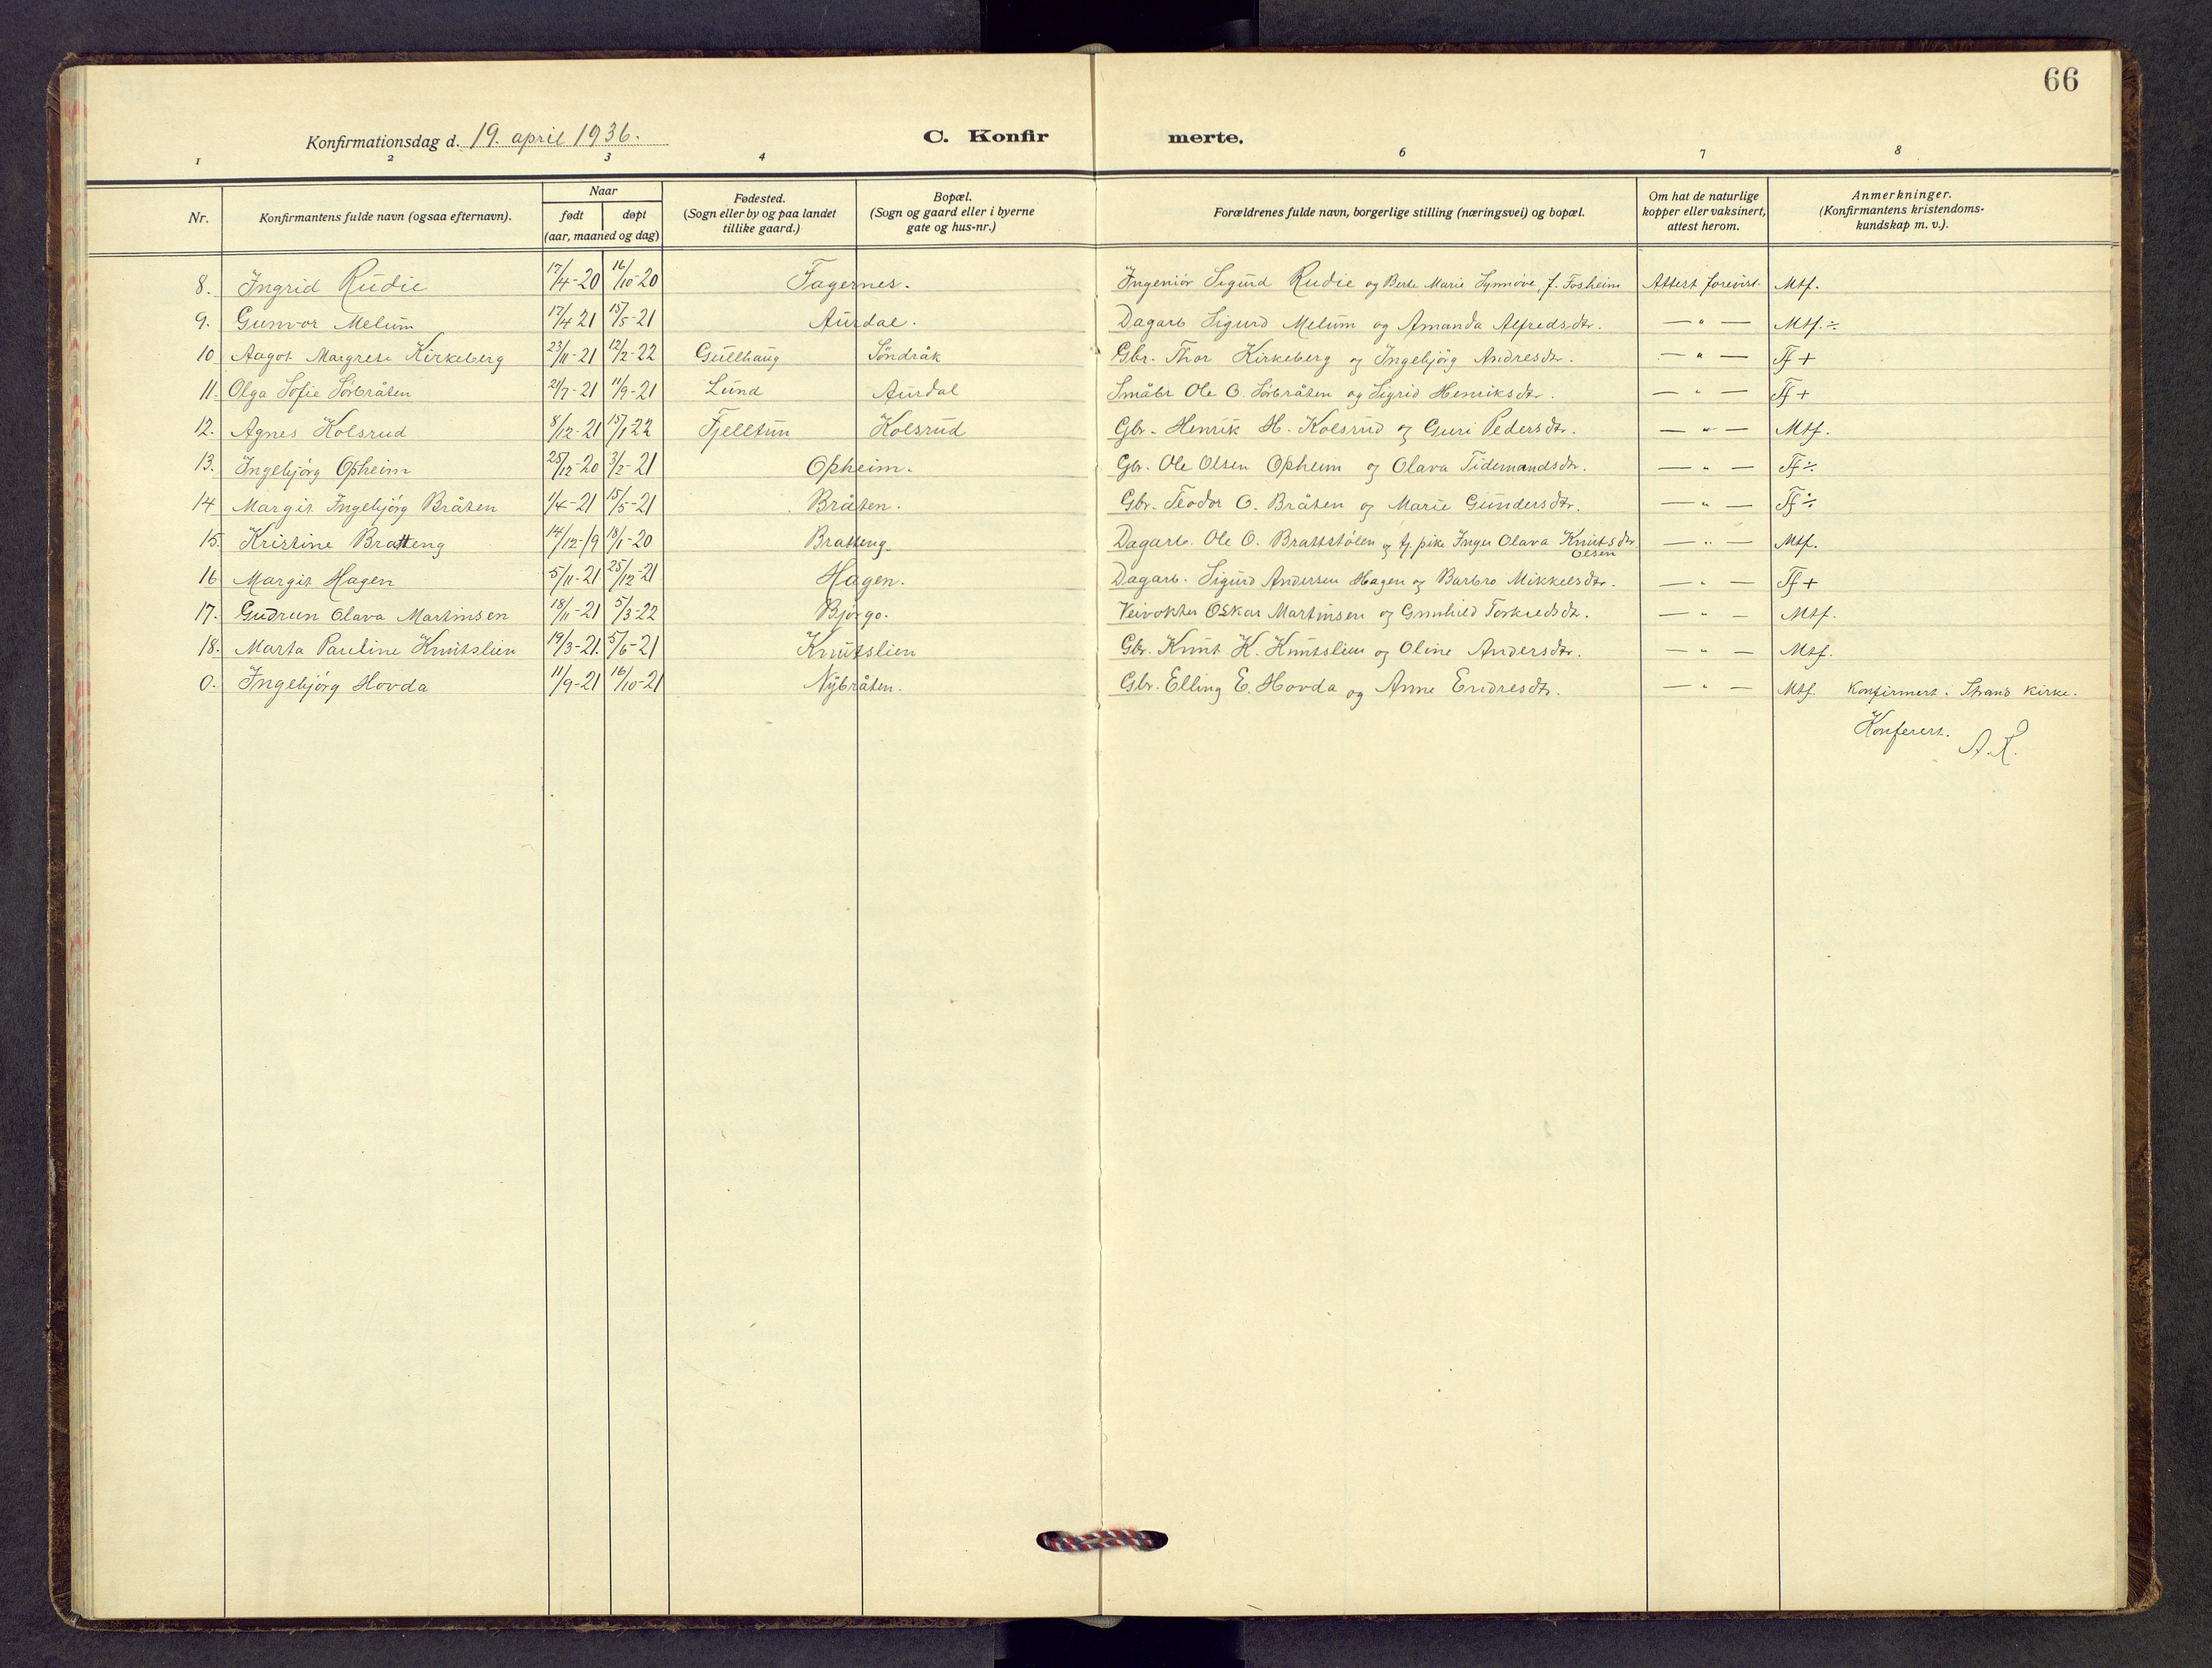 66
Konfirmationsdag d. 19. april 1936.
C. Konfir merte.
1 2 3 4 6 7 8
Nr.
Konfirmantens fulde navn (ogsaa efternavn).
Naar
født
døpt
(aar, maaned og dag)
Fødested.
(Sogn eller by og paa landet
tillike gaard.)
Bopæl.
(Sogn og gaard eller i byerne
gate og hus-nr.)
Forældrenes fulde navn, borgerlige stilling (næringsvei) og bopæl.
Om hat de naturlige
kopper eller vaksinert,
attest herom.
Anmerkninger.
(Konfirmantens kristendoms-
kundskap m. v.).
8. Ingrid Rudie 17/4-20 16/10-20 Fagernes. Ingeniør Sigurd Rudie og Berte Marie Synnøve, f. Fosheim Attest forevist. Mtf.
9. Gunvor Melum 17/4 21 15/5-21 Aurdal. Dagarb Sigurd Melum og Amanda Alfredsdtr. — " — Mtf. ÷
10 Aagot Margrete Kirkeberg 23/11-21 12/2-22 Gullhaug Søndråk Gbr. Thor Kirkeberg og Ingebjørg Andresdtr. — " — Tf +
11. Olga Sofie Sørbråten 21/7-21 11/9-21 Lund Aurdal Småbr Ole O. Sørbråten og Sigrid Henriksdtr. — " — Tf +
12. Agnes Kolsrud 8/12-21 15/1 22 Fjelltun Kolsrud Gbr. Henrik H. Kolsrud og Guri Pedersdtr. — " — Mtf.
13. Ingebjørg Opheim 25/12-20 3/2-21 Opheim. Gbr. Ole Olsen Opheim og Olava Tidemandsdtr. — " — Tf ÷
14 Margit Ingebjørg Bråten 1/4-21 15/5-21 Bråten. Gbr. Teodor O. Bråten og Marie Gundersdtr. — " — Tf ÷
15. Kristine Bratteng 14/12-19 18/1-20 Bratteng. Dagarb. Ole O. Brattstølen og tj. pike Inger Olava Knutsdtr.
Olsen
— " — Mtf.
16 Margit Hagen 5/11-21 25/12-21 Hagen. Dagarb. Sigurd Andersen Hagen og Barbro Mikkelsdtr. — " — Tf +
17. Gudrun Olava Martinsen 18/11-21 5/3-22 Bjørgo. Veivokter Oskar Martinsen og Gunhild Torkildsdt. — " — Mtf.
18. Marta Pauline Knutslien 19/3-21. 5/6-21 Knutslien Gbr. Knut K. Knutslien og Oline Andersdtr. — " — Mtf.
0. Ingebjørg Hovda 11/9-21 16/10-21 Nybråten. Gbr. Elling E. Hovda og Anne Endresdtr. — " — Mtf. Konfirmert i Strand kirke.
Konferert.